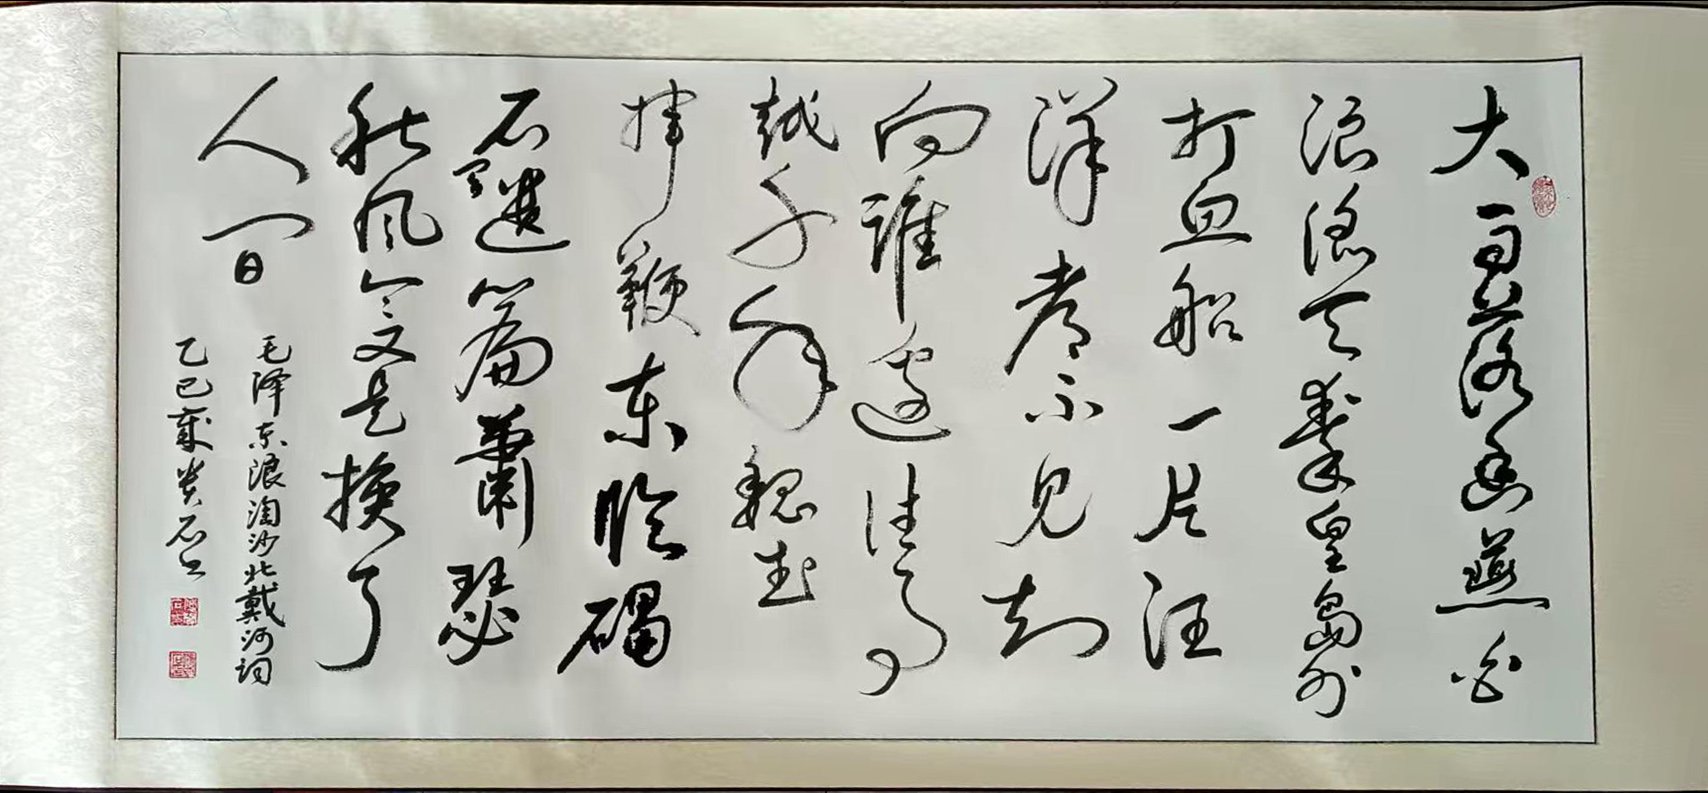 大雨落幽燕白
浪滔天秦皇岛外
打鱼船一片汪
洋都不见知
向谁边往事
越千年魏武
挥鞭东临碣
石有遗篇萧瑟
秋风今又是换了
人间
毛泽东浪淘沙北戴河词
乙巳岁石书